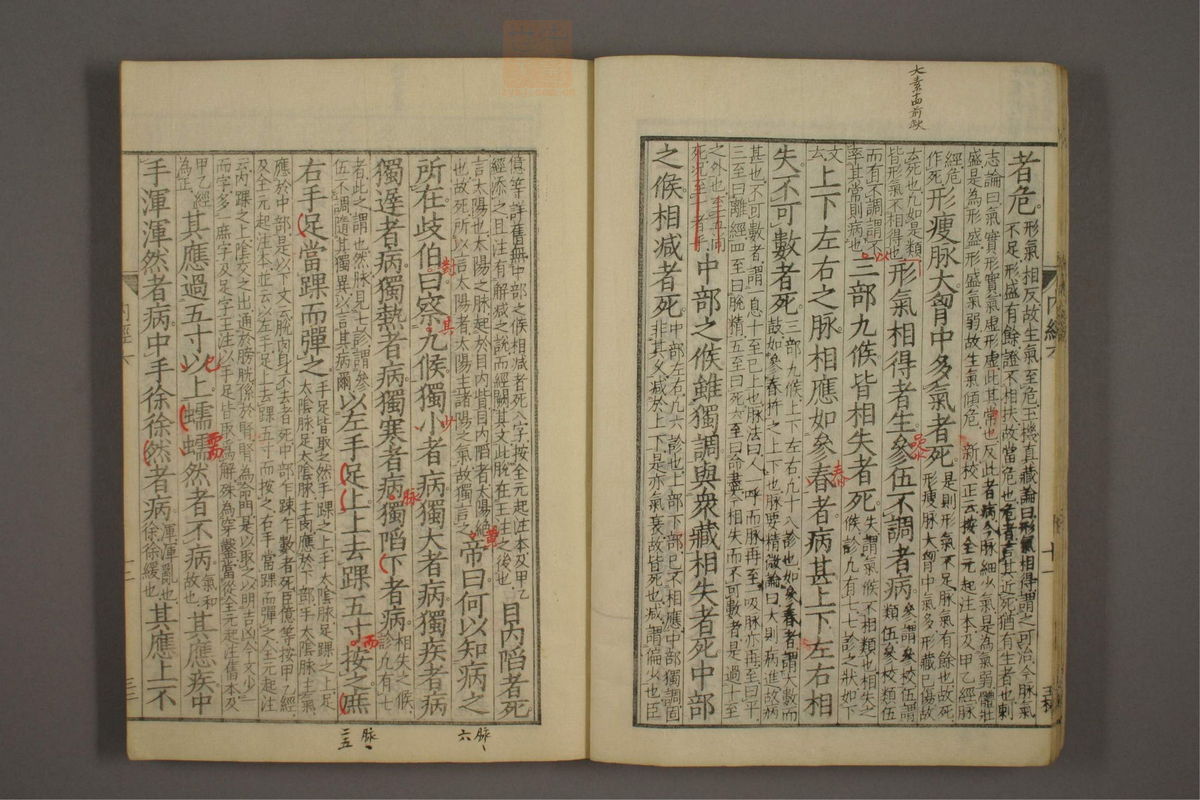 大素十四前缺
者危。形氣相反故生氣至危玉機真藏論曰形氣相得謂之可治今脉氣
不足形盛有餘證不相扶故當危也危者言其近死猶有生者也刺
志論曰氣實形實氣虛形虛此其常也反此者病今脉細少氣是為氣弱體壯
盛是為形盛形盛氣弱故生氣傾危 新校正云按全元起注本及甲乙經脉
經危作死 形瘦脉大胷中多氣者死 是則形氣不足脉氣有餘也故死
形瘦脉大胷中氣多形藏已傷故
去死也凡如是類皆形氣不相得也 形氣相得者生參伍不調者病 參謂參校伍謂類伍參校類伍
而有不調謂不率其常則病也 三部九候皆相失者死 失謂氣候不相類也相失之候診凡有七七診之狀如下
文云 上下左右之脉相應如參舂者病甚上下左右相
失不可數者死 三部九候上下左右凡十八診也如參舂者謂大數而
鼓如參舂杵之上下也脉要精微論曰大則病進故病
甚也不可數者謂一息十至已上也脉法曰人一呼而脉再至一吸脉亦再至曰平
三至曰離經四至曰脫精五至曰死六至曰命盡今相失而不可數者是過十至
之外也至五尚死况至十者乎 中部之候雖獨調與衆藏相失者死中部
之候相減者死 中部左右凡六診也上部下部已不相應中部獨調固
非其久減於上下是亦氣衰故皆死也減謂偏少也臣
億等詳舊無中部之候相減者死八字按全元起注本及甲乙
經添之且注有解減之說而經闕其文此脫在王注之後也 目內陷者死
言太陽也太陽之脉起於目內眥目內陷者太陽絕
也故死所以言太陽者太陽主諸陽之氣故獨言之 帝曰何以知病之
所在歧伯曰察九候獨小者病獨大者病獨疾者病
獨遲者病獨熱者病獨寒者病獨陷下者病 相失之候診凡有七
者此之謂也然脉見七診謂參伍不調隨其獨異以言其病爾 以左手足上上去踝五寸按之庶
右手足當踝而彈之 手足皆取之然手踝之上手太陰脉足踝之上足
太陰脉足太陰脉主肉應於下部手太陰脉主氣
應於中部是以下文云脫肉身不去者死中部乍踈乍數者死臣億等按甲乙經
及全元起注本並云以左手足上去踝五寸而按之右手當踝而彈之全元起注
云內踝之上陰交之出通於膀胱係於腎腎為命門是以取之以明吉凶今文少一
而字多一庶字及足字王注以手足皆取為解殊為穿鑿當從全元起注舊本及
甲乙經為正 其應過五寸以上蠕蠕然者不病 氣和故也 其應疾中
手渾渾然者病中手徐徐然者病 渾渾亂也徐徐緩也 其應上不
內經六